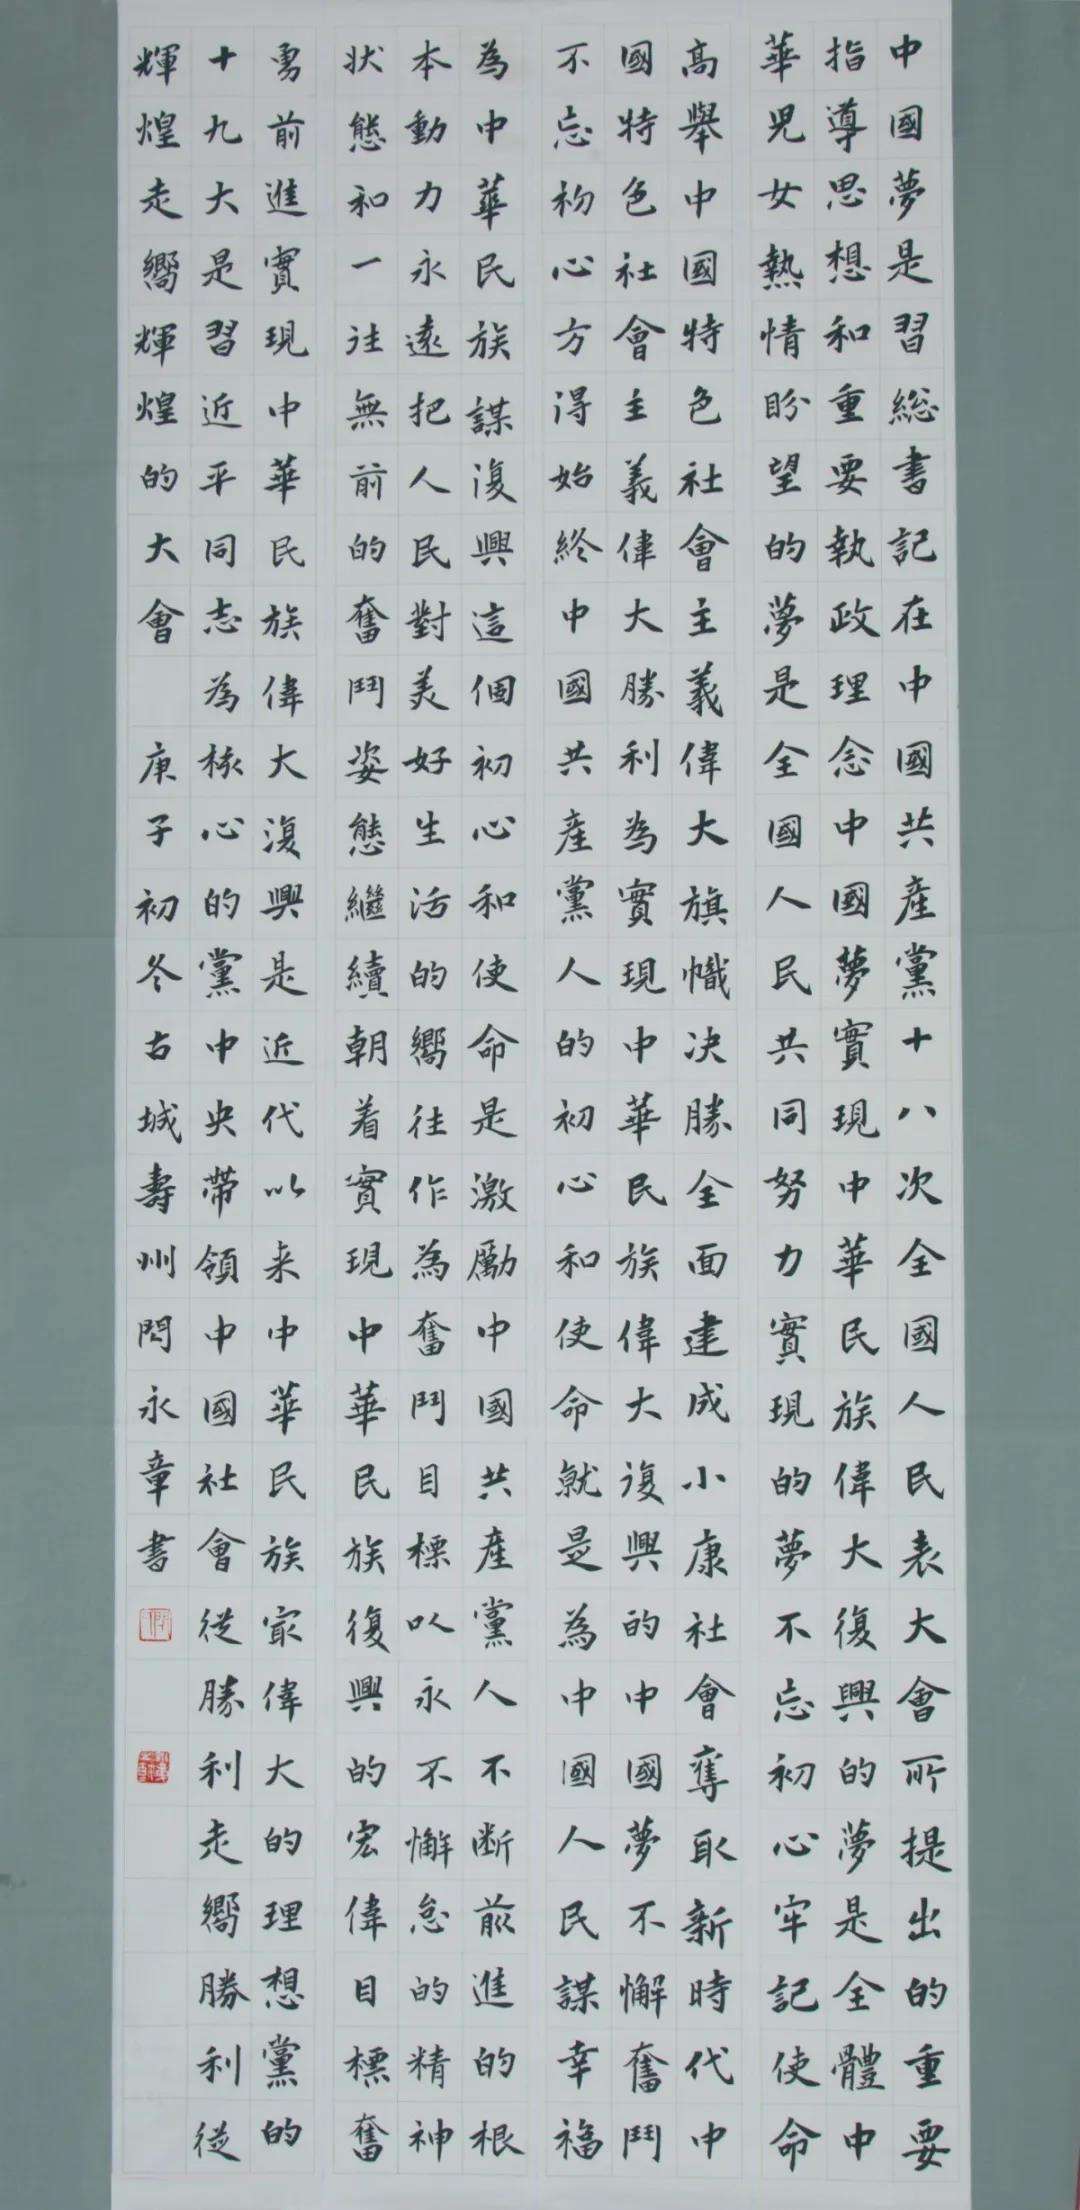 中國夢是習総書記在中國共產黨十八次全國人民表大會所提出的重要
指導思想和重要執政理念中國夢實現中華民族偉大復興的夢是全體中
華兒女熱情盼望的夢是全國人民共同努力實現的夢不忘初心牢記使命
高舉中國特色社會主義偉大旗幟决勝全面建成小康社會奪取新時代中
國特色社會主義偉大勝利為實現中華民族偉大復興的中國夢不懈奮鬥
不忘初心方得始終中國共產黨人的初心和使命就是為中國人民謀幸福
為中華民族謀復興這個初心和使命是激勵中國共產黨人不断前進的根
本動力永遠把人民對美好生活的嚮往作為奮鬥目標以永不懈怠的精神
狀態和一往無前的奮鬥姿態繼續朝着實現中華民族復興的宏偉目標奮
勇前進實現中華民族偉大復興是近代以来中華民族最偉大的理想黨的
十九大是習近平同志為核心的黨中央帶領中國社會從勝利走嚮勝利從
輝煌走嚮輝煌的大會 庚子初冬古城壽州閃永章書